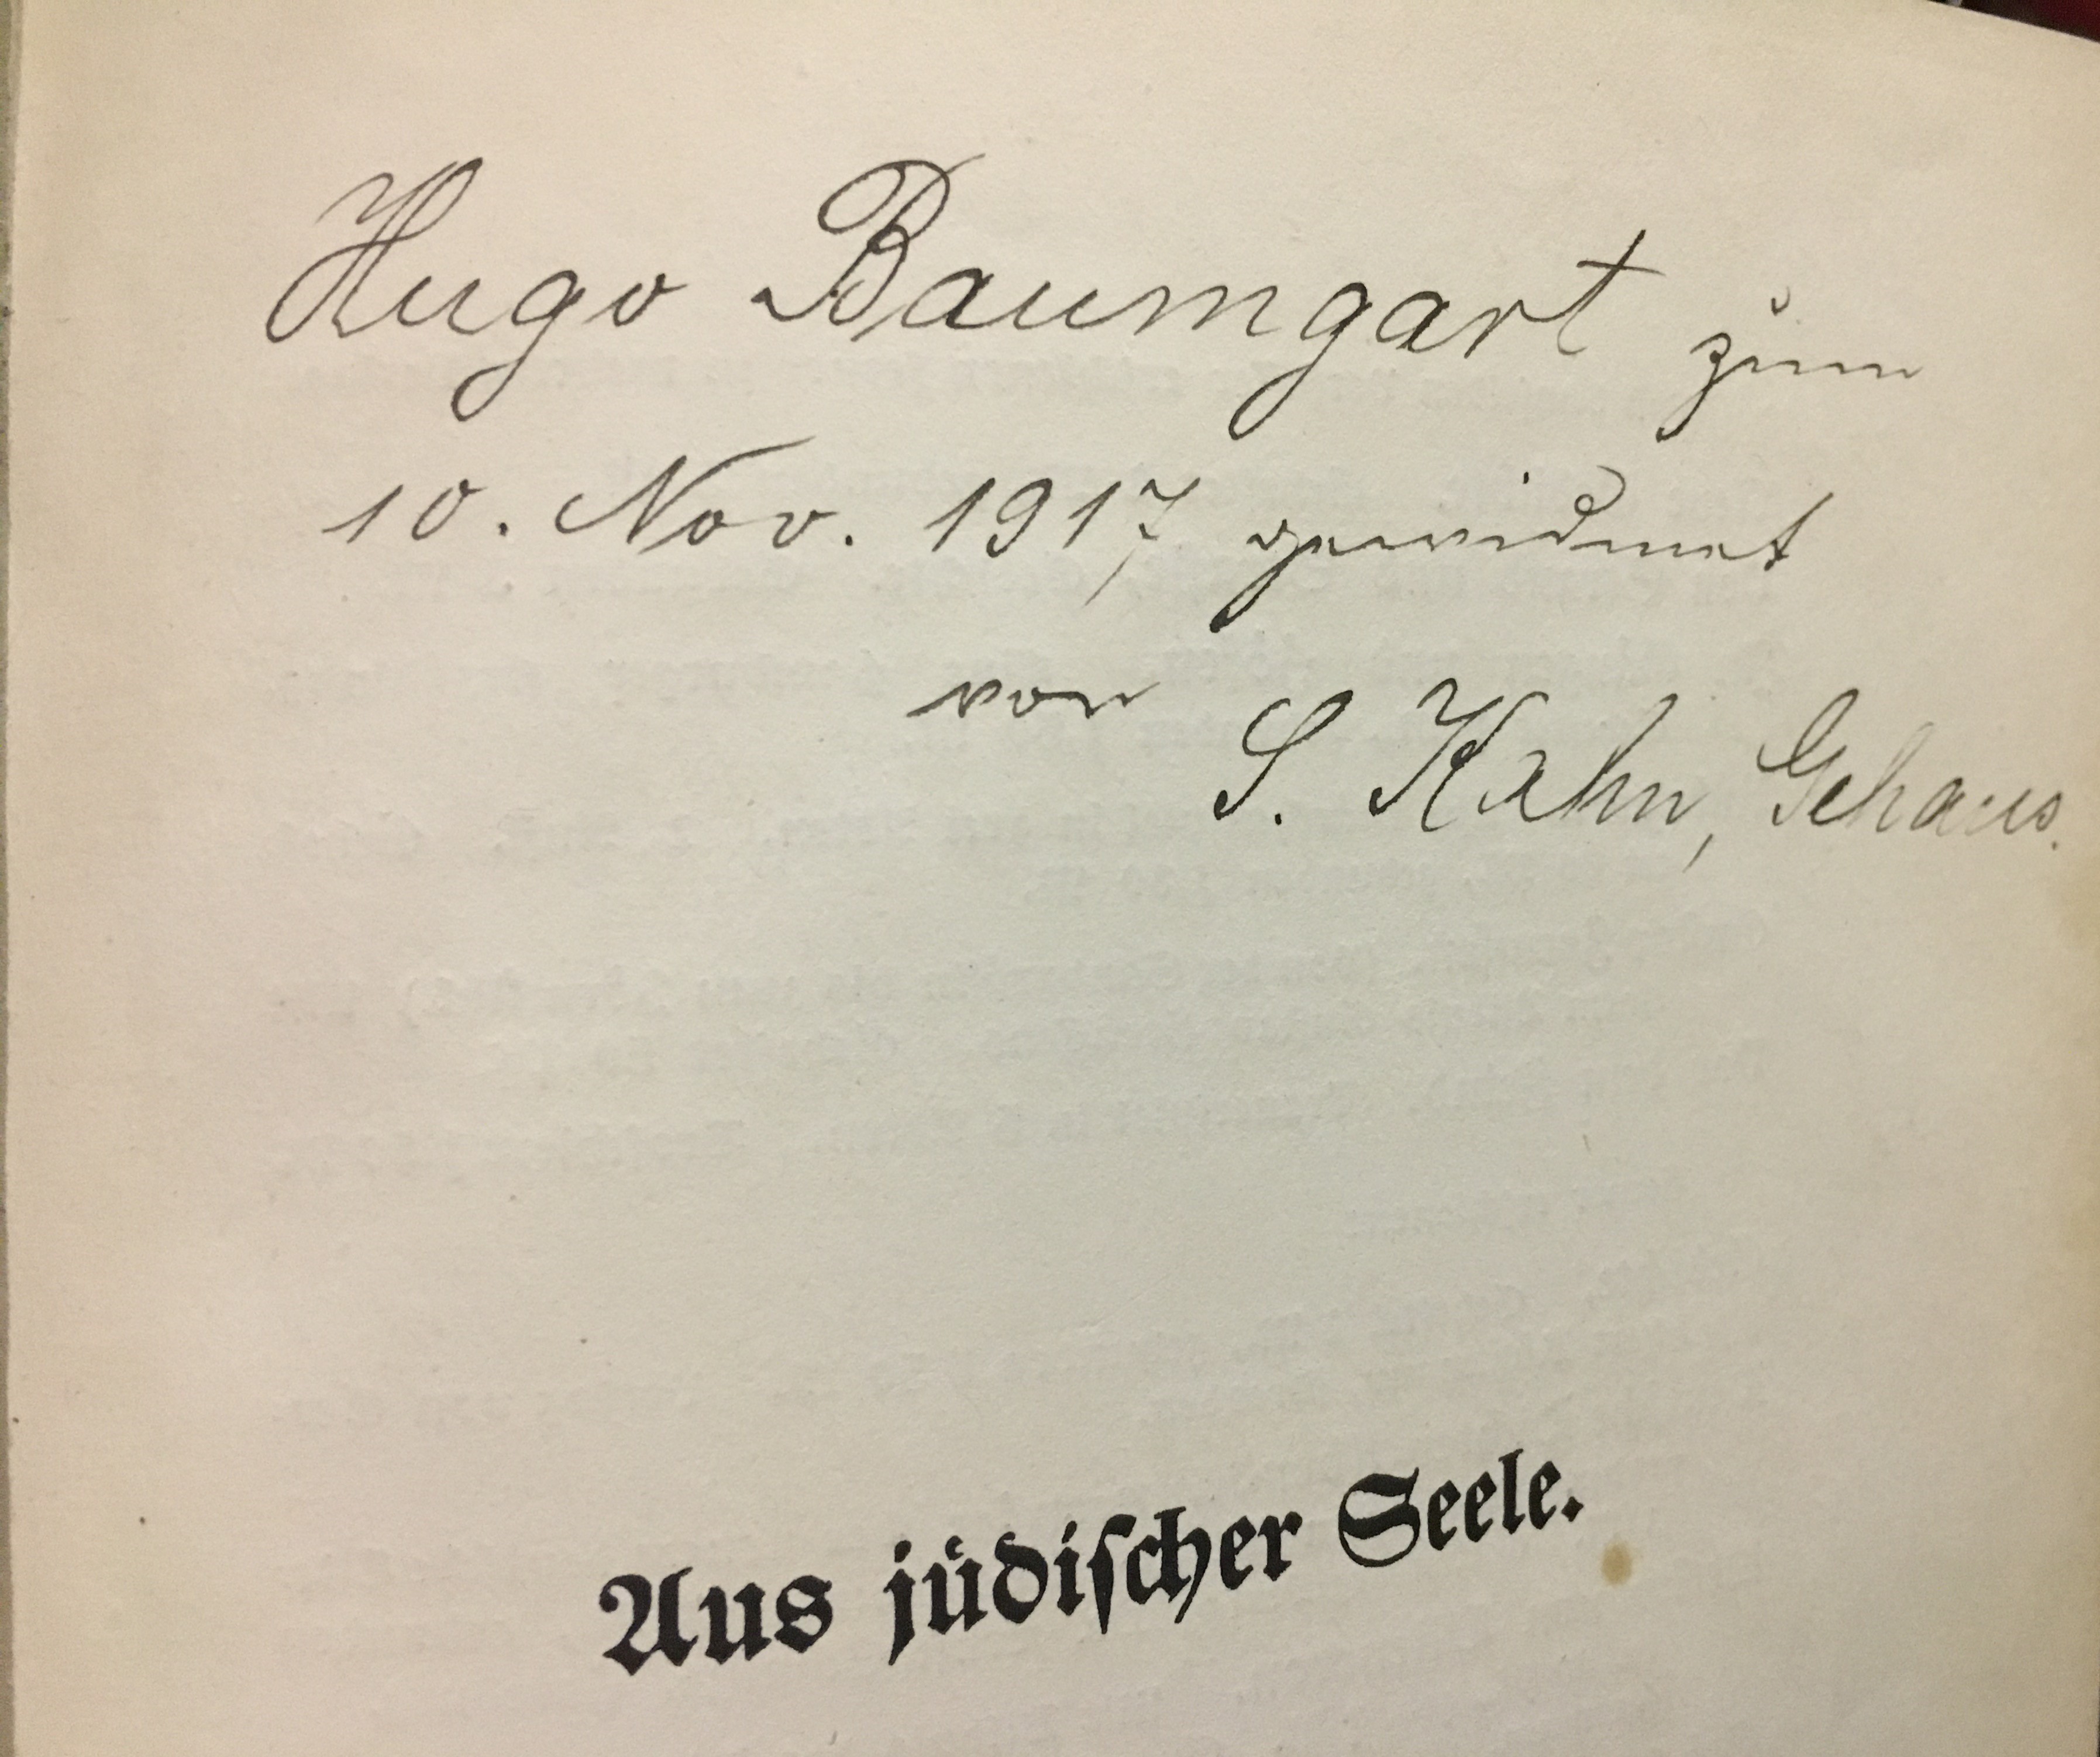 Hugo Baumgart zum
10. Nov. 1917 gewidmet
von S. Kahn, Gehaus.
Aus jüdischer Seele.